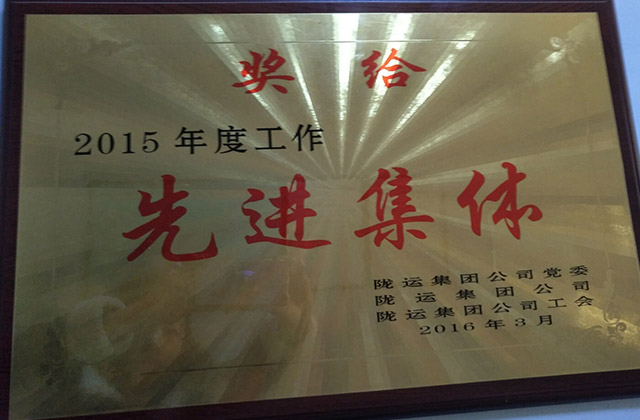 奖给
2015年度工作
先进集体
陇运集团公司党委
陇运集团公司
陇运集团公司工会
2016年3月